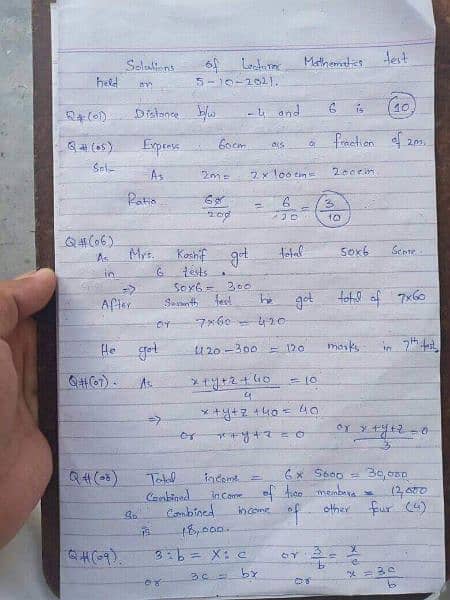 Solutions of Lecturer Mathematics test
held on 5-10-2021.
Q#(01) Distance b/w -4 and 6 is 10
Q#(05) Express 60cm as a fraction of 2m.
Sol- As 2m = 2x100cm = 200cm.
Ratio 60/200 = 6/20 = 3/10
Q#(06)
As Mrs. Kashif got total 50x6 Score
in 6 tests.
⇒ 50x6 = 300
After Seventh test he got total of 7x60
or 7x60 = 420
He got 420-300 = 120 marks in 7th test
Q#(07). As x+y+z+40/4 = 10
⇒ x+y+z+40 = 40
or x+y+z = 0 or x+y+z/3 = 0
Q#(08) Total income = 6 x 5000 = 30,000
Combined income of two members = 12,000
So Combined income of other four (4)
is 18,000.
Q#(09). 3:b = x:c or 3/b = x/c
or 3c = bx or x = 3c/b